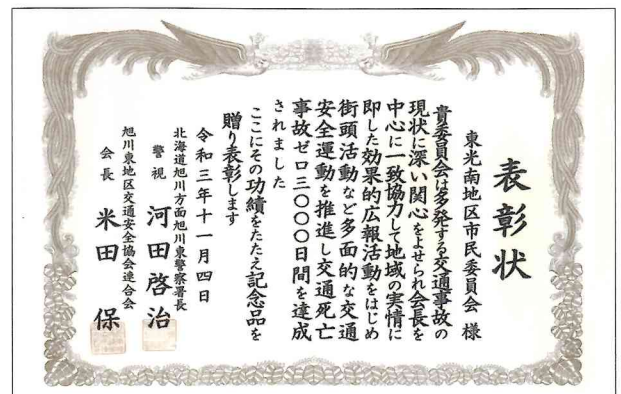 表彰状
東光南地区市民委員会 様
貴委員会は多発する交通事故の
現状に深い関心をよせられ会長を
中心に一致協力して地域の実情に
即した効果的広報活動をはじめ
街頭活動など多面的な交通
安全運動を推進し交通死亡
事故ゼロ三〇〇〇日間を達成
されました
ここにその功績をたたえ記念品を
贈り表彰します
令和三年十一月四日
北海道旭川方面旭川東警察署長
警視 河田啓治
旭川東地区交通安全協会連合会
会長 米田 保